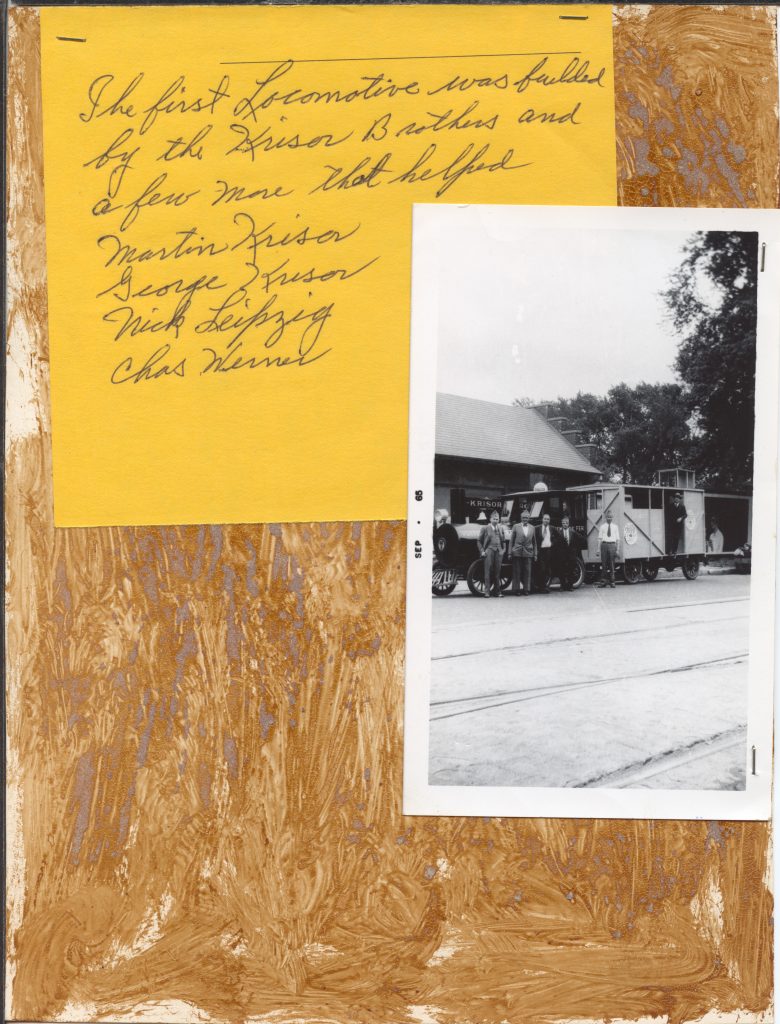 The first Locomotive was builded
by the Krisor Brothers and
a few more that helped
Martin Krisor
George Krisor
Nick Leipzig
Chas Werner
SEP • 65
KRISOR